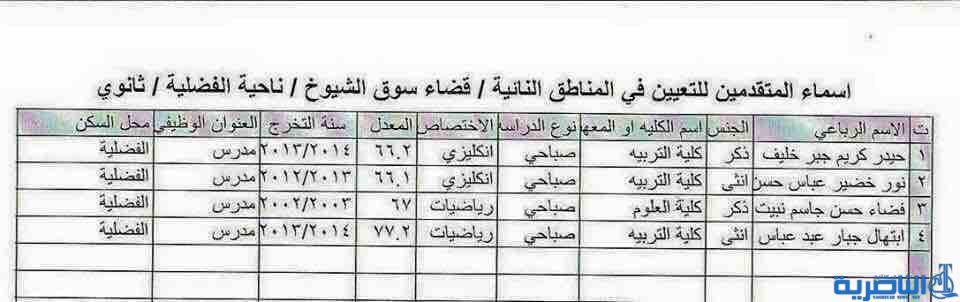 اسماء المتقدمين للتعيين في المناطق النائية / قضاء سوق الشيوخ / ناحية الفضلية / ثانوي
ت الاسم الرباعي الجنس اسم الكليه او المعهد نوع الدراسه الاختصاص المعدل سنة التخرج العنوان الوظيفي محل السكن
١ حيدر كريم جبر خليف ذكر كلية التربيه صباحي انكليزي ٦٦.٢ ٢٠١٣/٢٠١٤ مدرس الفضلية
٢ نور خضير عباس حسن انثى كلية التربيه صباحي انكليزي ٦٦.١ ٢٠١٢/٢٠١٣ مدرس الفضلية
٣ فضاء حسن جاسم نبيت ذكر كلية العلوم صباحي رياضيات ٦٧ ٢٠٠٢/٢٠٠٣ مدرس الفضلية
٤ ابتهال جبار عبد عباس انثى كلية التربيه صباحي رياضيات ٧٧.٢ ٢٠١٣/٢٠١٤ مدرس الفضلية
الناصرية